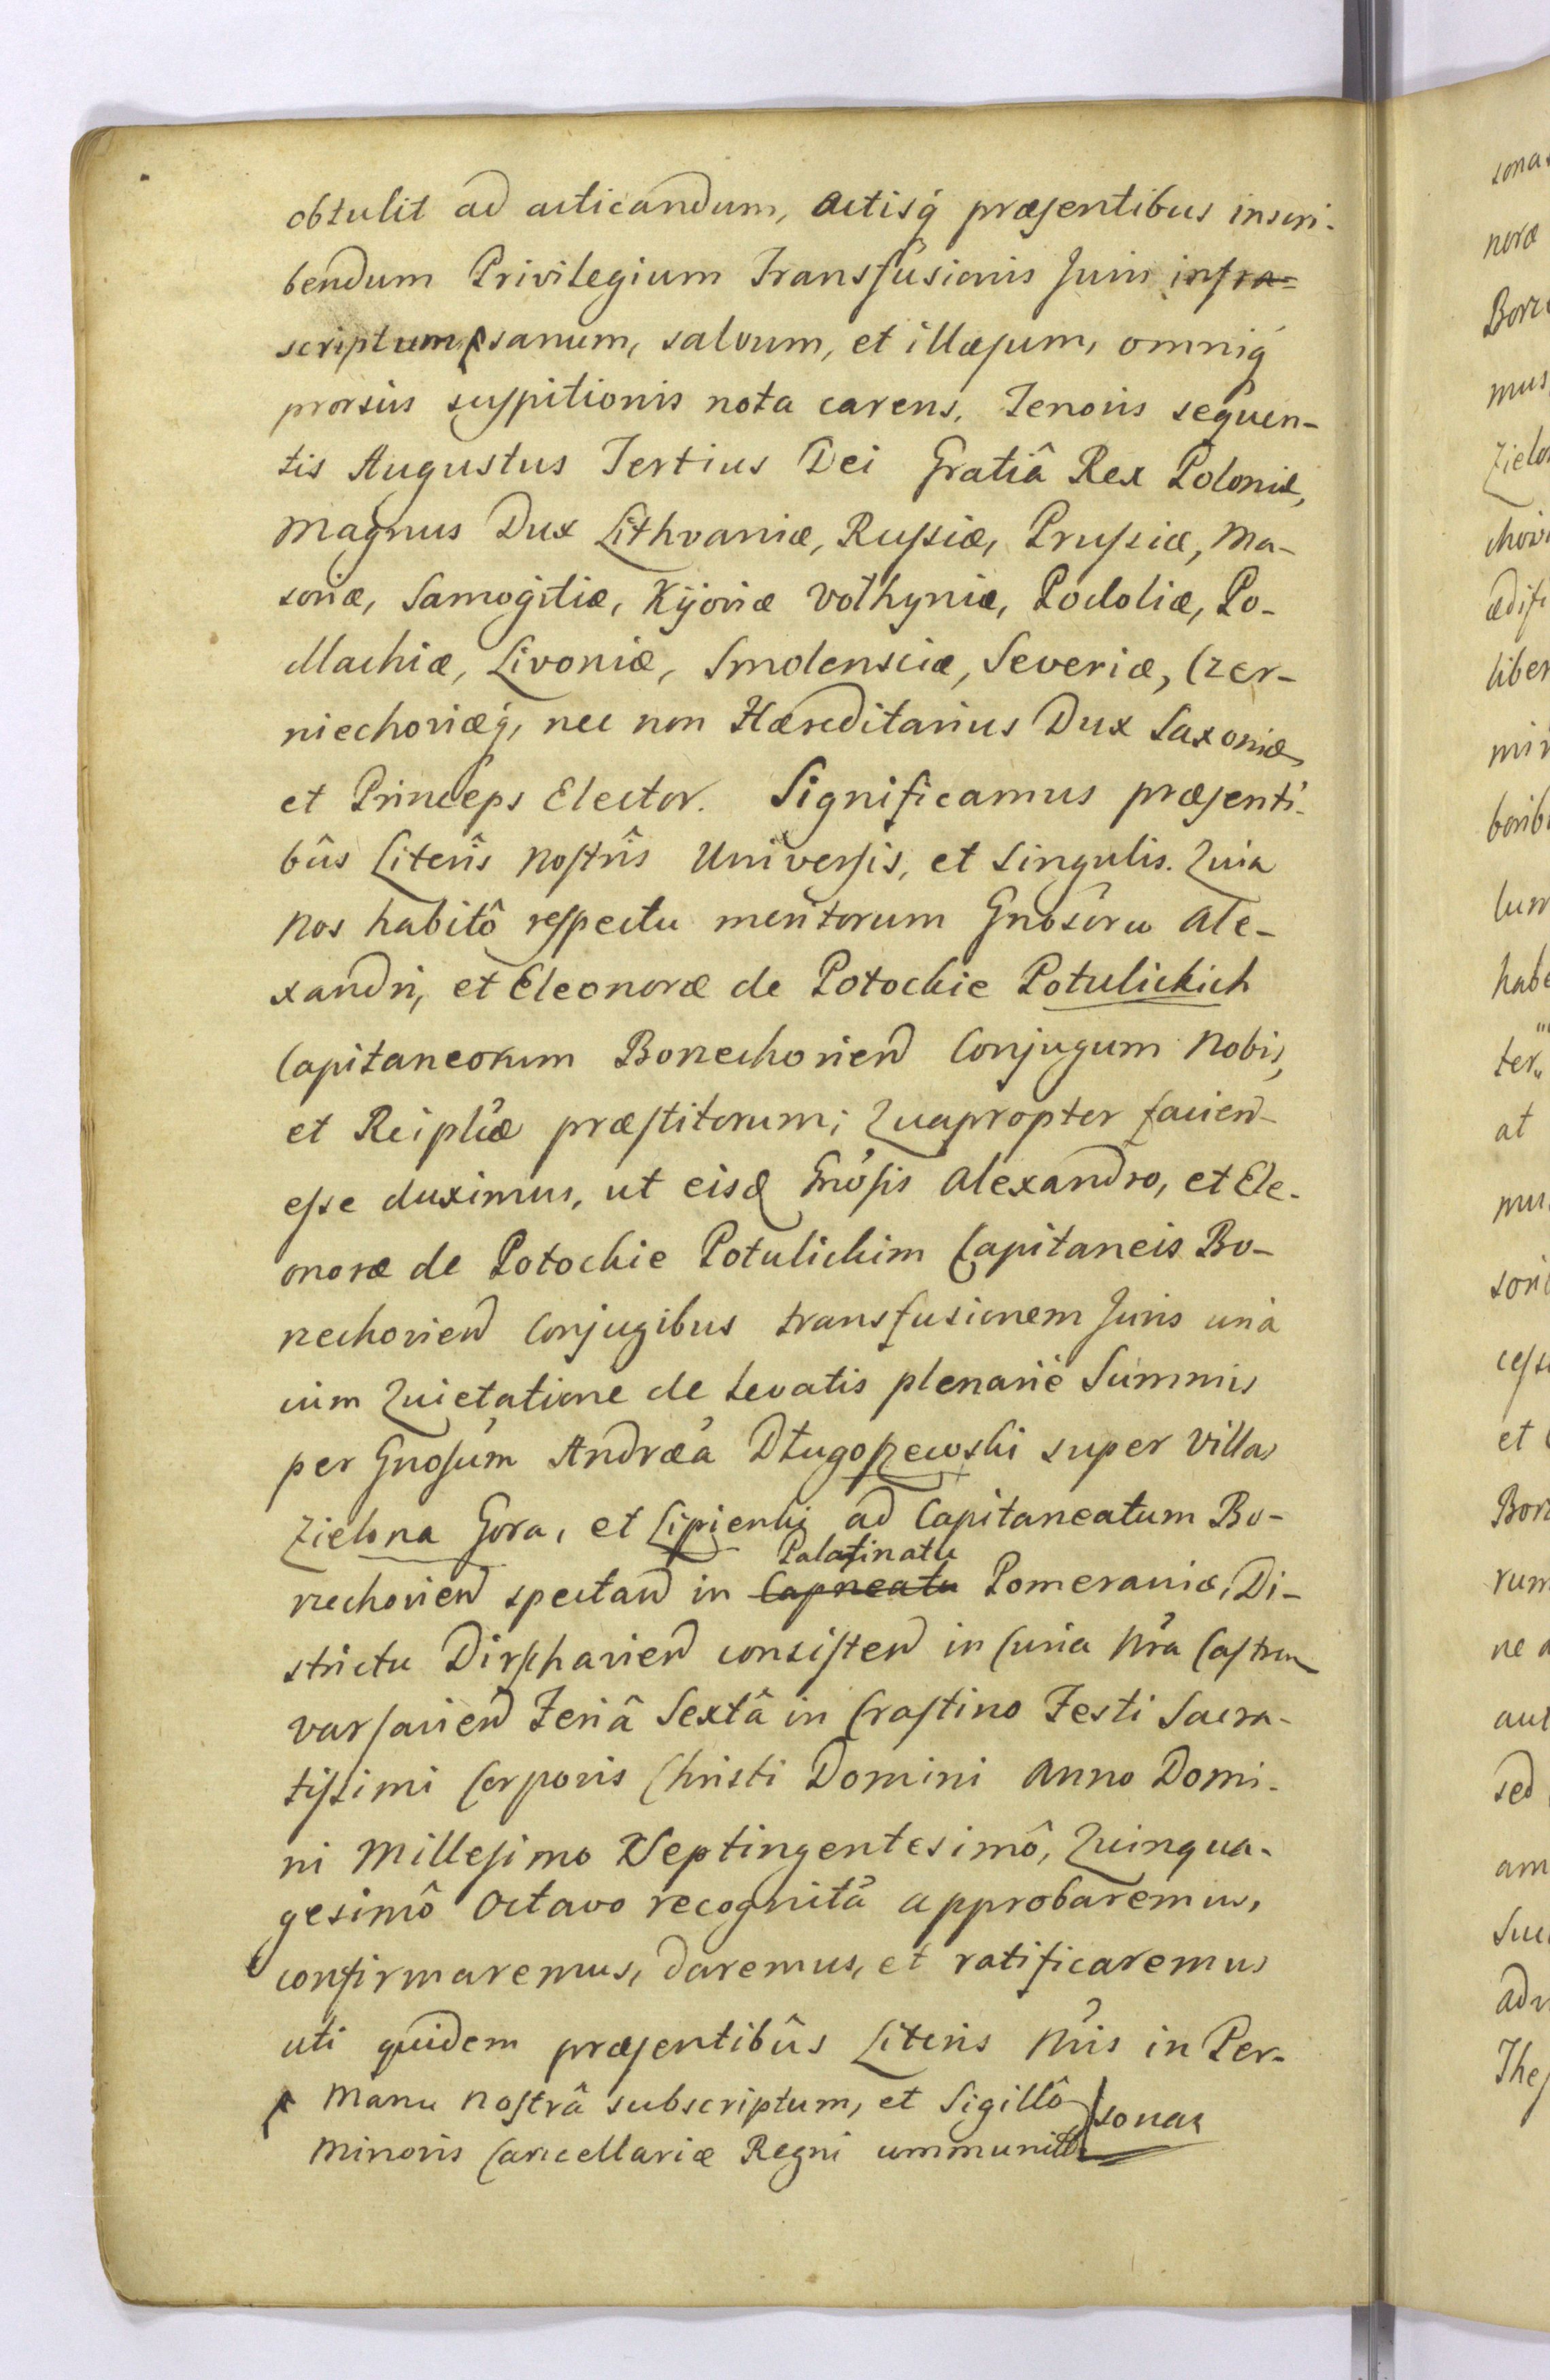 obtulit ad acticandum, Actisq́ præsentibus inscri-
bendum Privilegium Transfusionis Juris infra=
scriptum sanum, salvum, et illæsum, omniq́
prorsus suspitionis nota carens. Tenoris sequen-
tis Augustus Tertius Dei Gratiâ Rex Poloniæ,
Magnus Dux Lithvaniæ, Russiæ, Prussiæ, Ma-
soviæ, Samogitiæ, Kijoviæ Volhyniæ, Podoliæ, Po-
dlachiæ, Livoniæ, Smolensciæ, Severiæ, Czer-
niechoviæq́, nec non Hæreditarius Dux Saxoniæ,
et Princeps Elector. Significamus præsenti-
bûs Literîs nostrîs Universis, et Singulis. Quia
Nos habitô respectu meritorum Gnosorũ Ale-
xandri, et Eleonoræ de Potockie Potulickich
Capitaneorum Borzechovien Conjugum Nobis,
et Reiplcæ præstitorum; Quapropter facien-
esse duximus, ut eisd Gnosis Alexandro, et Ele-
onoræ de Potockie Potulickim Capitaneis Bo-
rzechovien Conjugibus transfusionem Juris unà
cum Quietatione de levatis plenariè Summis
per Gnosum Andræa Długoszewski super Villas
Zielona Gora, et Lipienki ad Capitaneatum Bo-
Palatinatu
rzechovien spectan in Capneatu Pomeraniæ, Di-
strictu Dirshavien consisten in Curia Nra Castren
Varsavien Feriâ Sextâ in Crastino Festi Sacra-
tissimi Corporis Christi Domini Anno Domi-
ni Millesimo Septingentesimô, Quinqua-
gesimô Octavo recognitã approbaremus,
confirmaremus, daremus, et ratificaremus
uti quidem præsentibûs Literis Nris in Per-
sonas
Manu Nostrâ subscriptum, et Sigillô
Minoris Cancellariæ Regni communitũ